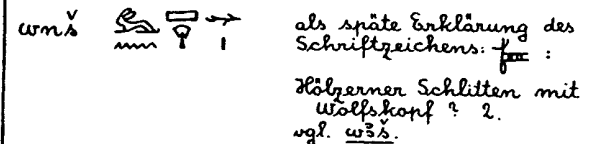 wnš
als späte Erklärung des
Schriftzeichens: :
Hölzerner Schlitten mit
Wolfskopf ? 2.
vgl. wꜣš.